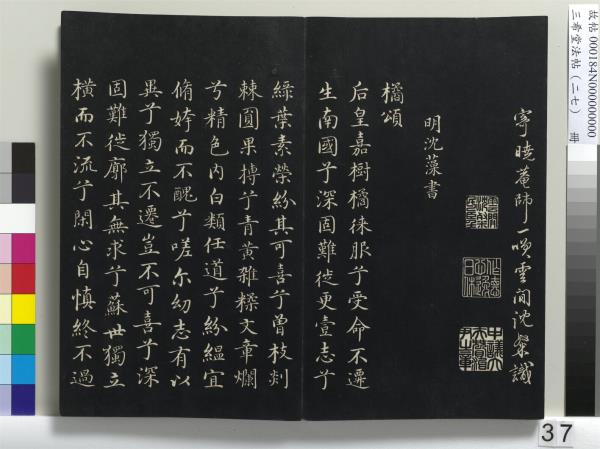 故帖 000184N000000000
三希堂法帖（二七） 冊
寄曉菴師一咲雲間沈粲識
明沈藻書
橘頌
后皇嘉樹橘徠服兮受命不遷
生南國兮深固難徙更壹志兮
綠葉素榮紛其可喜兮曾枝剡
棘圓果摶兮青黃雜糅文章爛
兮精色內白類任道兮紛緼宜
脩姱而不醜兮嗟尔幼志有以
異兮獨立不遷豈不可喜兮深
固難徙廓其無求兮蘇世獨立
橫而不流兮閑心自慎終不過
37